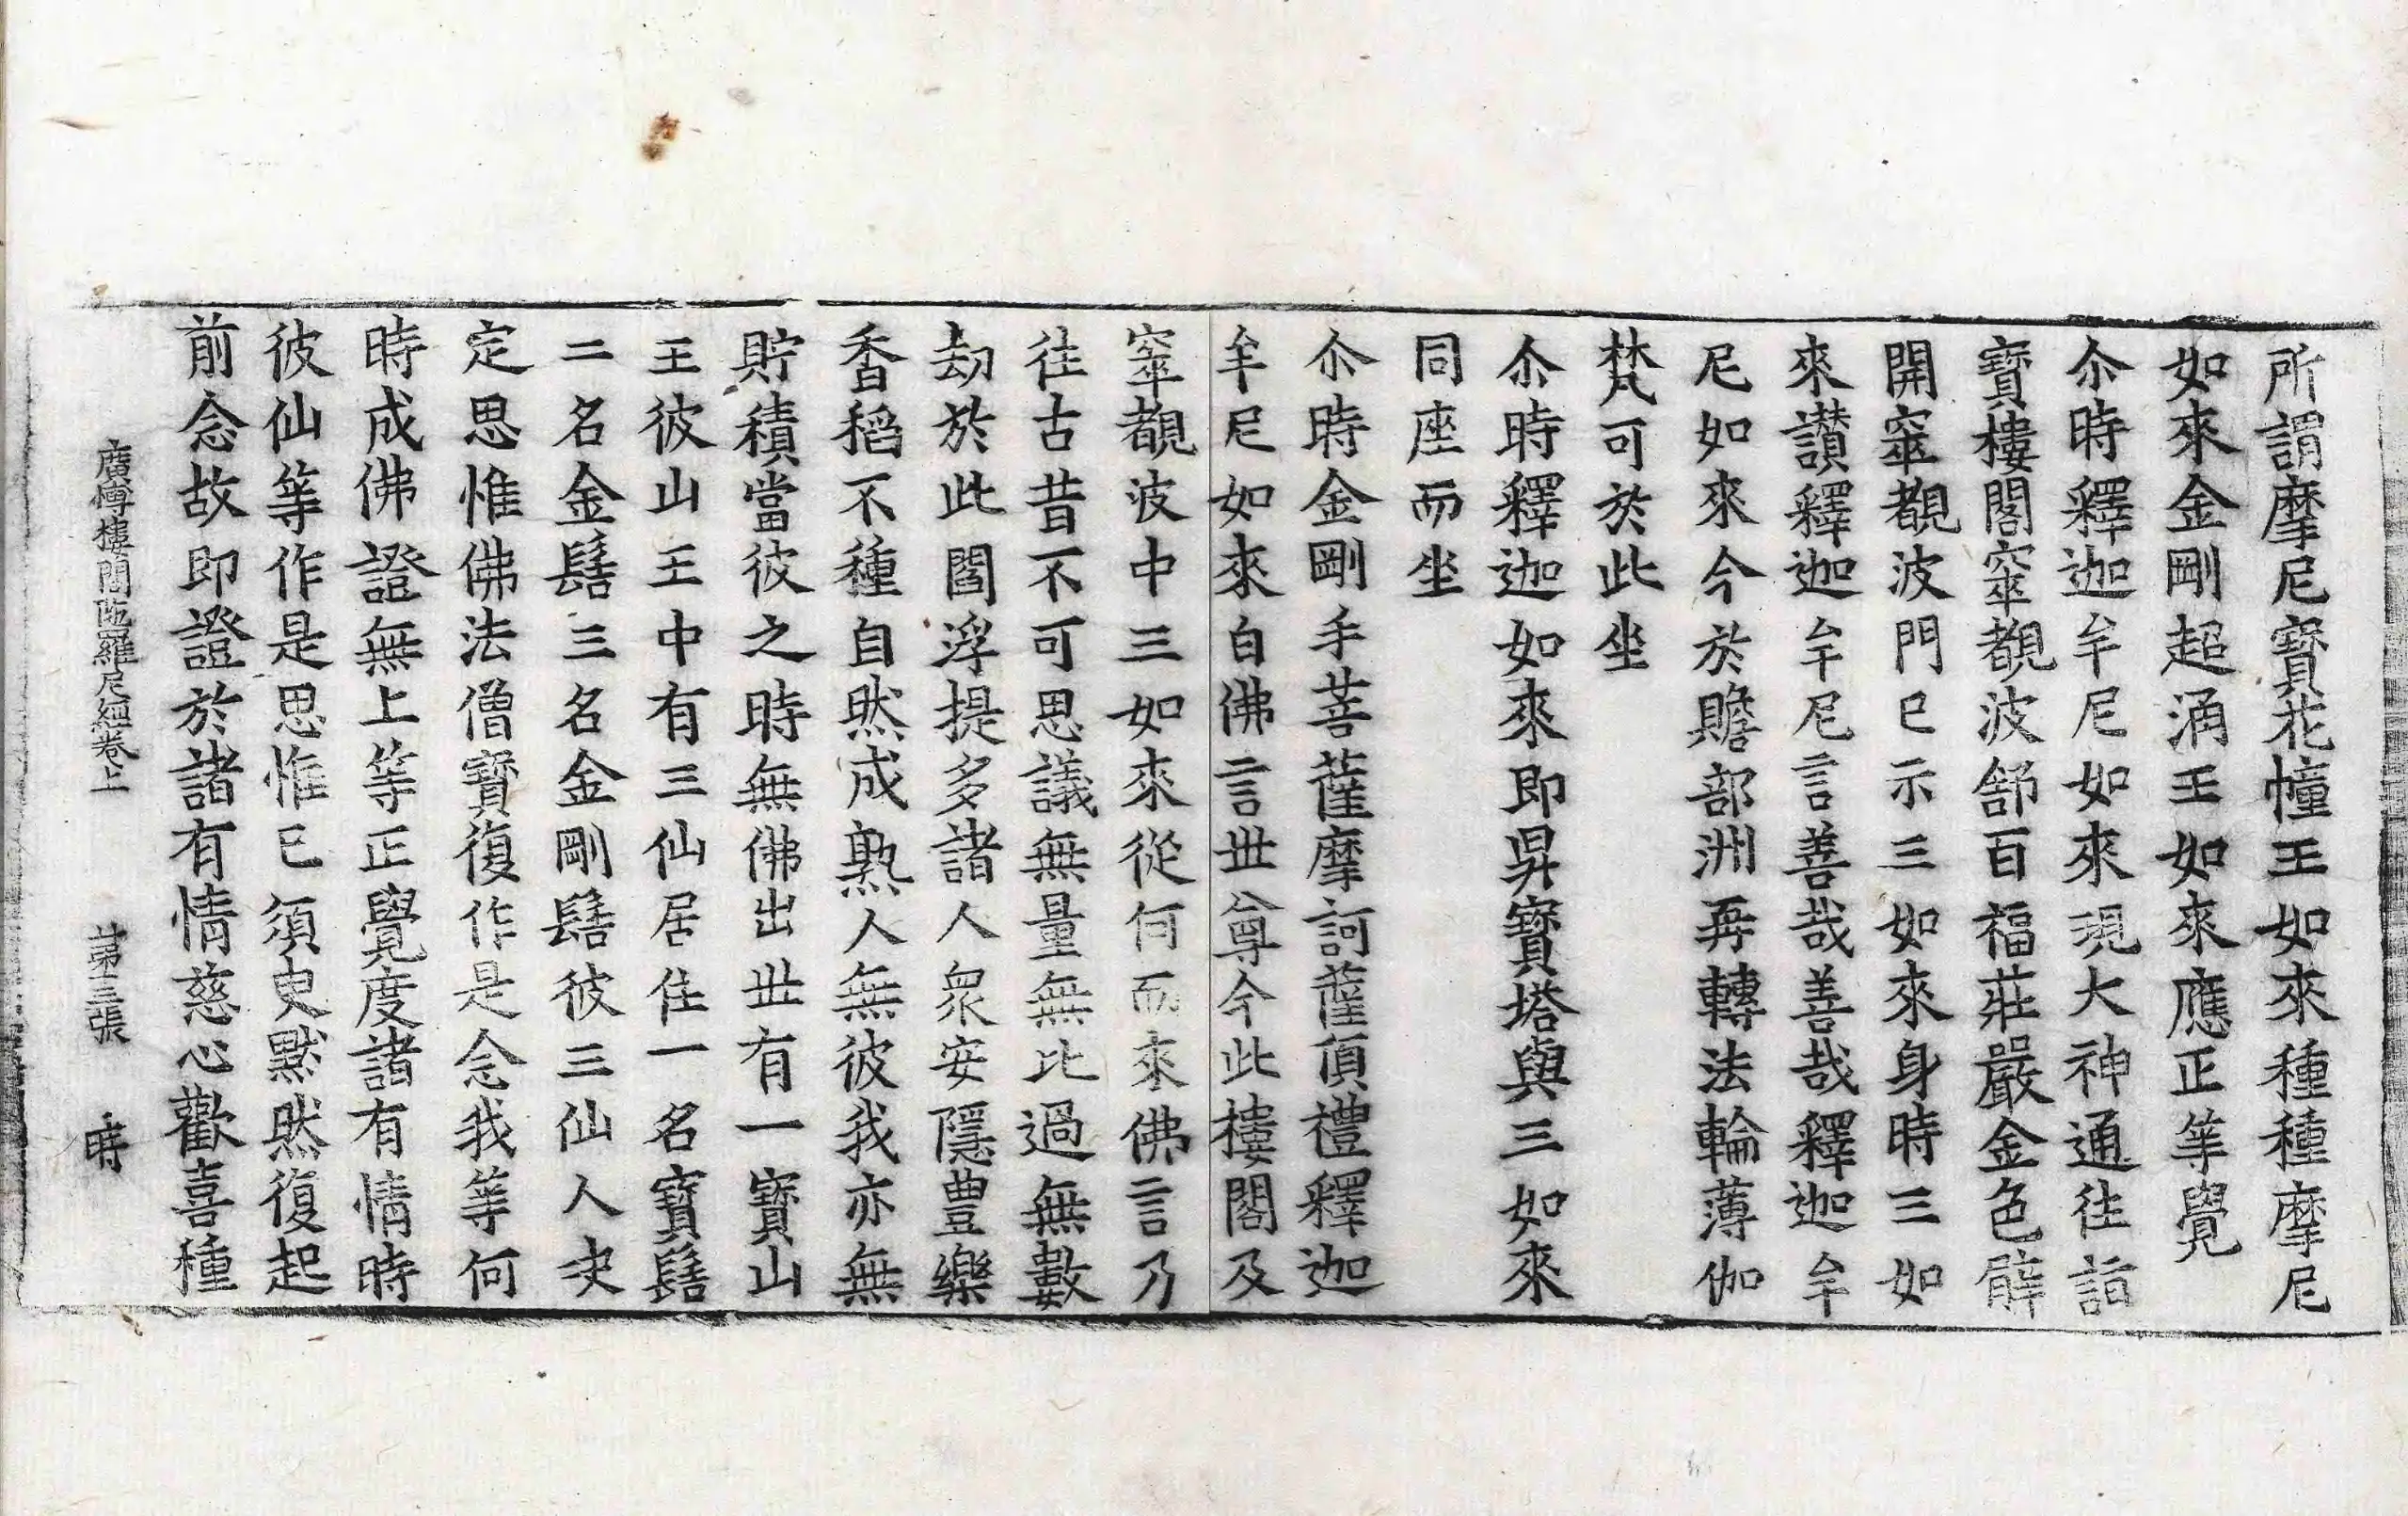 所謂摩尼寳花幢王如來種種摩尼
如來金剛超涌王如來應正等覺
尒時釋迦牟尼如來現大神通往詣
寳樓閣窣覩波舒百福莊嚴金色臂
開窣覩波門已示三如來身時三如
來讃釋迦牟尼言善哉善哉釋迦牟
尼如來今於贍部洲再轉法輪薄伽
梵可於此坐
尒時釋迦如來即昇寳塔與三如來
同座而坐
尒時金剛手菩薩摩訶薩頂禮釋迦
牟尼如來白佛言丗尊今此樓閣及
窣覩波中三如來從何而來佛言乃
往古昔不可思議無量無比過無數
劫於此閻浮提多諸人衆安隱豊樂
香稻不種自然成熟人無彼我亦無
貯積當彼之時無佛出丗有一寳山
王彼山王中有三仙居住一名寳髻
二名金髻三名金剛髻彼三仙人史
定思惟佛法僧寳復作是念我等何
時成佛證無上等正覺度諸有情時
彼仙等作是思惟已須臾黙然復起
前念故即證於諸有情慈心歡喜種
廣博樓閣陁羅尼經卷上 第三張 時